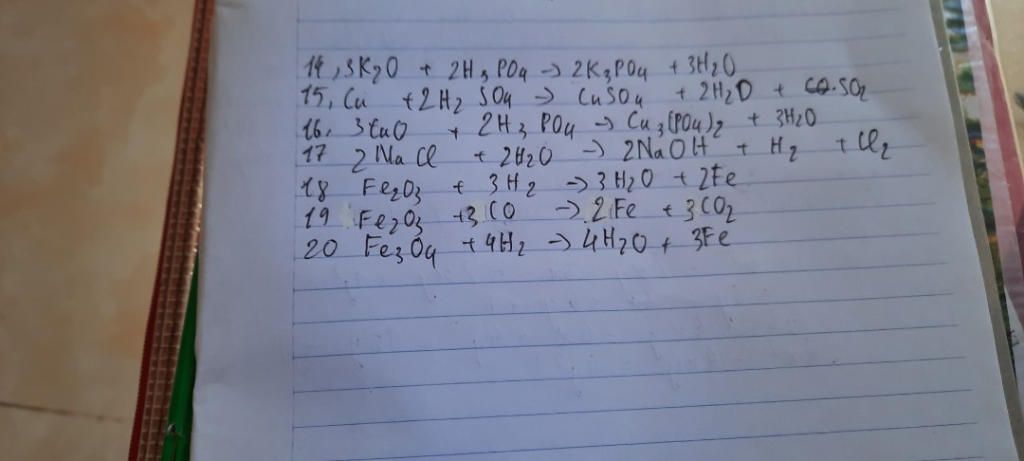 14, 3K2O + 2H3PO4 → 2K3PO4 + 3H2O
15, Cu + 2H2SO4 → CuSO4 + 2H2O + SO2
16, 3CuO + 2H3PO4 → Cu3(PO4)2 + 3H2O
17 2NaCl + 2H2O → 2NaOH + H2 + Cl2
18 Fe2O3 + 3H2 → 3H2O + 2Fe
19 Fe2O3 + 3CO → 2Fe + 3CO2
20 Fe3O4 + 4H2 → 4H2O + 3Fe